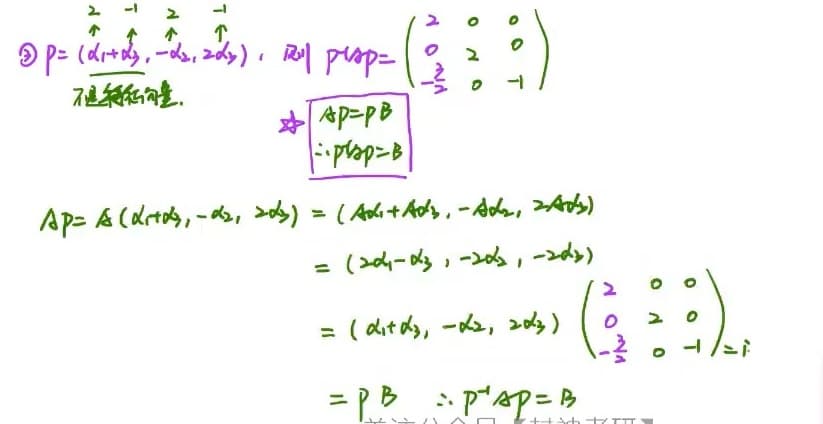 2 -1 2 -1
↑ ↑ ↑ ↑
③ P=(α₁+α₃, -α₂, 2α₃), 则 P⁻¹AP= ( 2 0 0
0 2 0
-3/2 0 -1 )
不是特征向量.
☆ AP=PB
∴P⁻¹AP=B
AP=A(α₁+α₃, -α₂, 2α₃) = (Aα₁+Aα₃, -Aα₂, 2Aα₃)
= (2α₁-α₃, -2α₂, -2α₃)
= (α₁+α₃, -α₂, 2α₃) ( 2 0 0
0 2 0
-3/2 0 -1 ) =
= PB ∴ P⁻¹AP=B